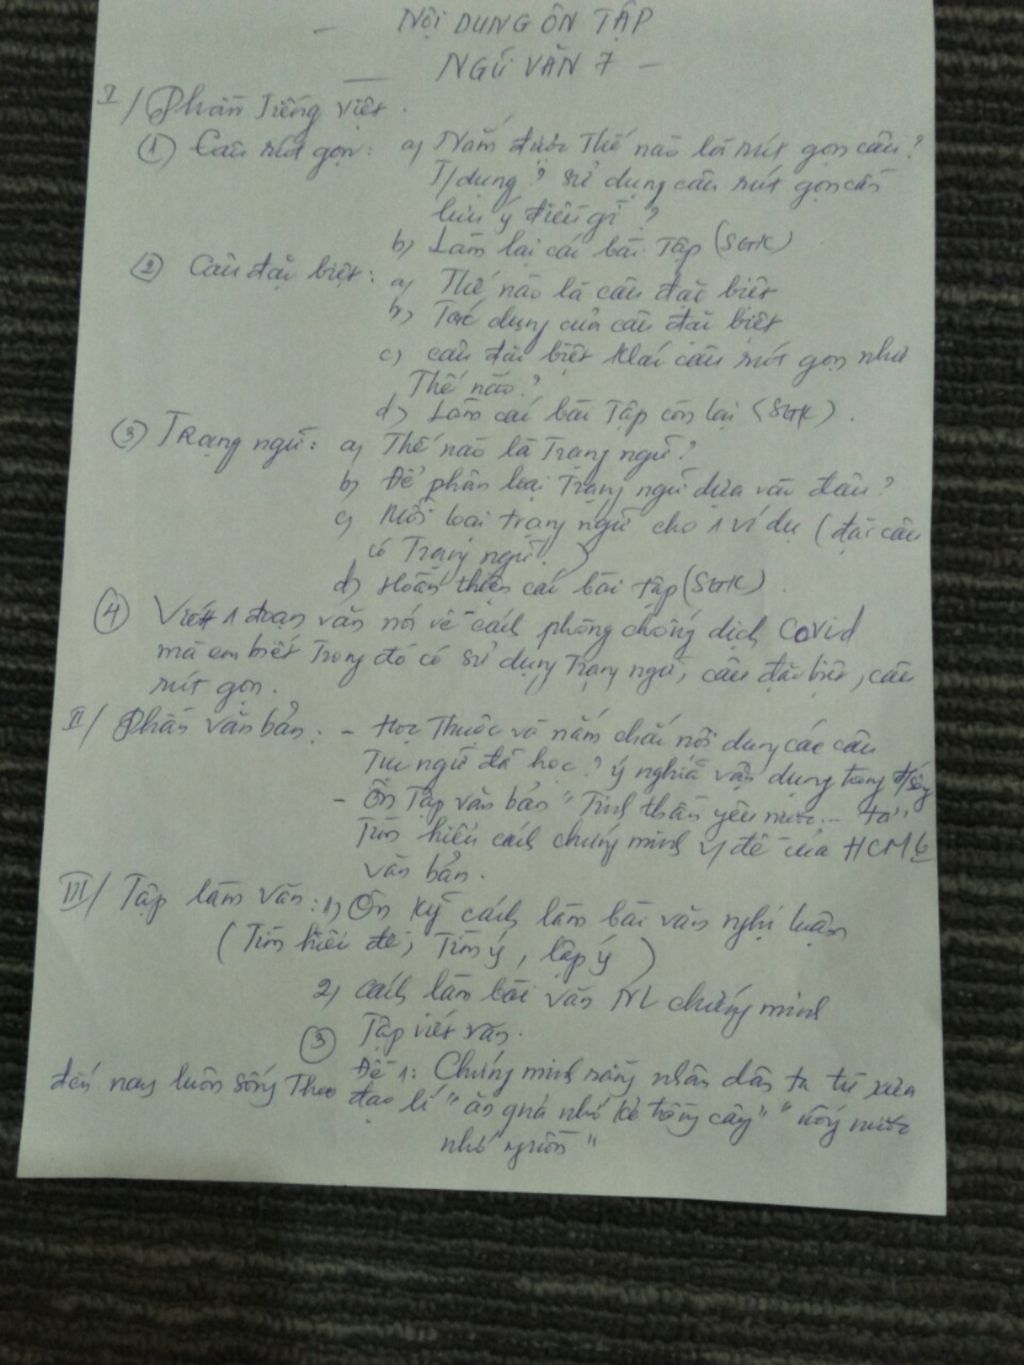 - NỘI DUNG ÔN TẬP
- NGỮ VĂN 7 -
I/ Phần Tiếng Việt.
① Câu rút gọn: a) Nắm được Thế nào là rút gọn câu?
T/dụng? sử dụng câu rút gọn cần
lưu ý điều gì?
b) Làm lại các bài Tập (SGK)
② Câu đặc biệt: a) Thế nào là câu đặc biệt
b) Tác dụng của câu đặc biệt
c) câu đặc biệt khác câu rút gọn như
Thế nào?
d) Làm các bài Tập còn lại (SGK).
③ TRạng ngữ: a) Thế nào là Trạng ngữ?
b) Để phân loại Trạng ngữ dựa vào đâu?
c) Mỗi loại trạng ngữ cho 1 ví dụ (đặt câu
có Trạng ngữ?)
d) Hoàn thiện các bài tập (SGK).
④ Viết 1 đoạn văn nói về cách phòng chống dịch Covid
mà em biết Trong đó có sử dụng Trạng ngữ, câu đặc biệt, câu
rút gọn.
II/ Phần văn bản: - Học Thuộc và nắm chắc nội dung các câu
Tục ngữ đã học? ý nghĩa vận dụng trong đ/sống
- Ôn Tập văn bản "Tinh thần yêu nước... ta"
Tìm hiểu cách chứng minh v/đề của HCM
văn bản.
III/ Tập làm văn: 1) Ôn kỹ cách làm bài văn nghị luận
(Tìm hiểu đề, Tìm ý, lập ý)
2) cách làm bài văn NL chứng minh
③ Tập viết văn.
Đề 1: Chứng minh rằng nhân dân ta từ xưa
đến nay luôn sống Theo đạo lí "ăn quả nhớ kẻ trồng cây" "Uống nước
nhớ nguồn"